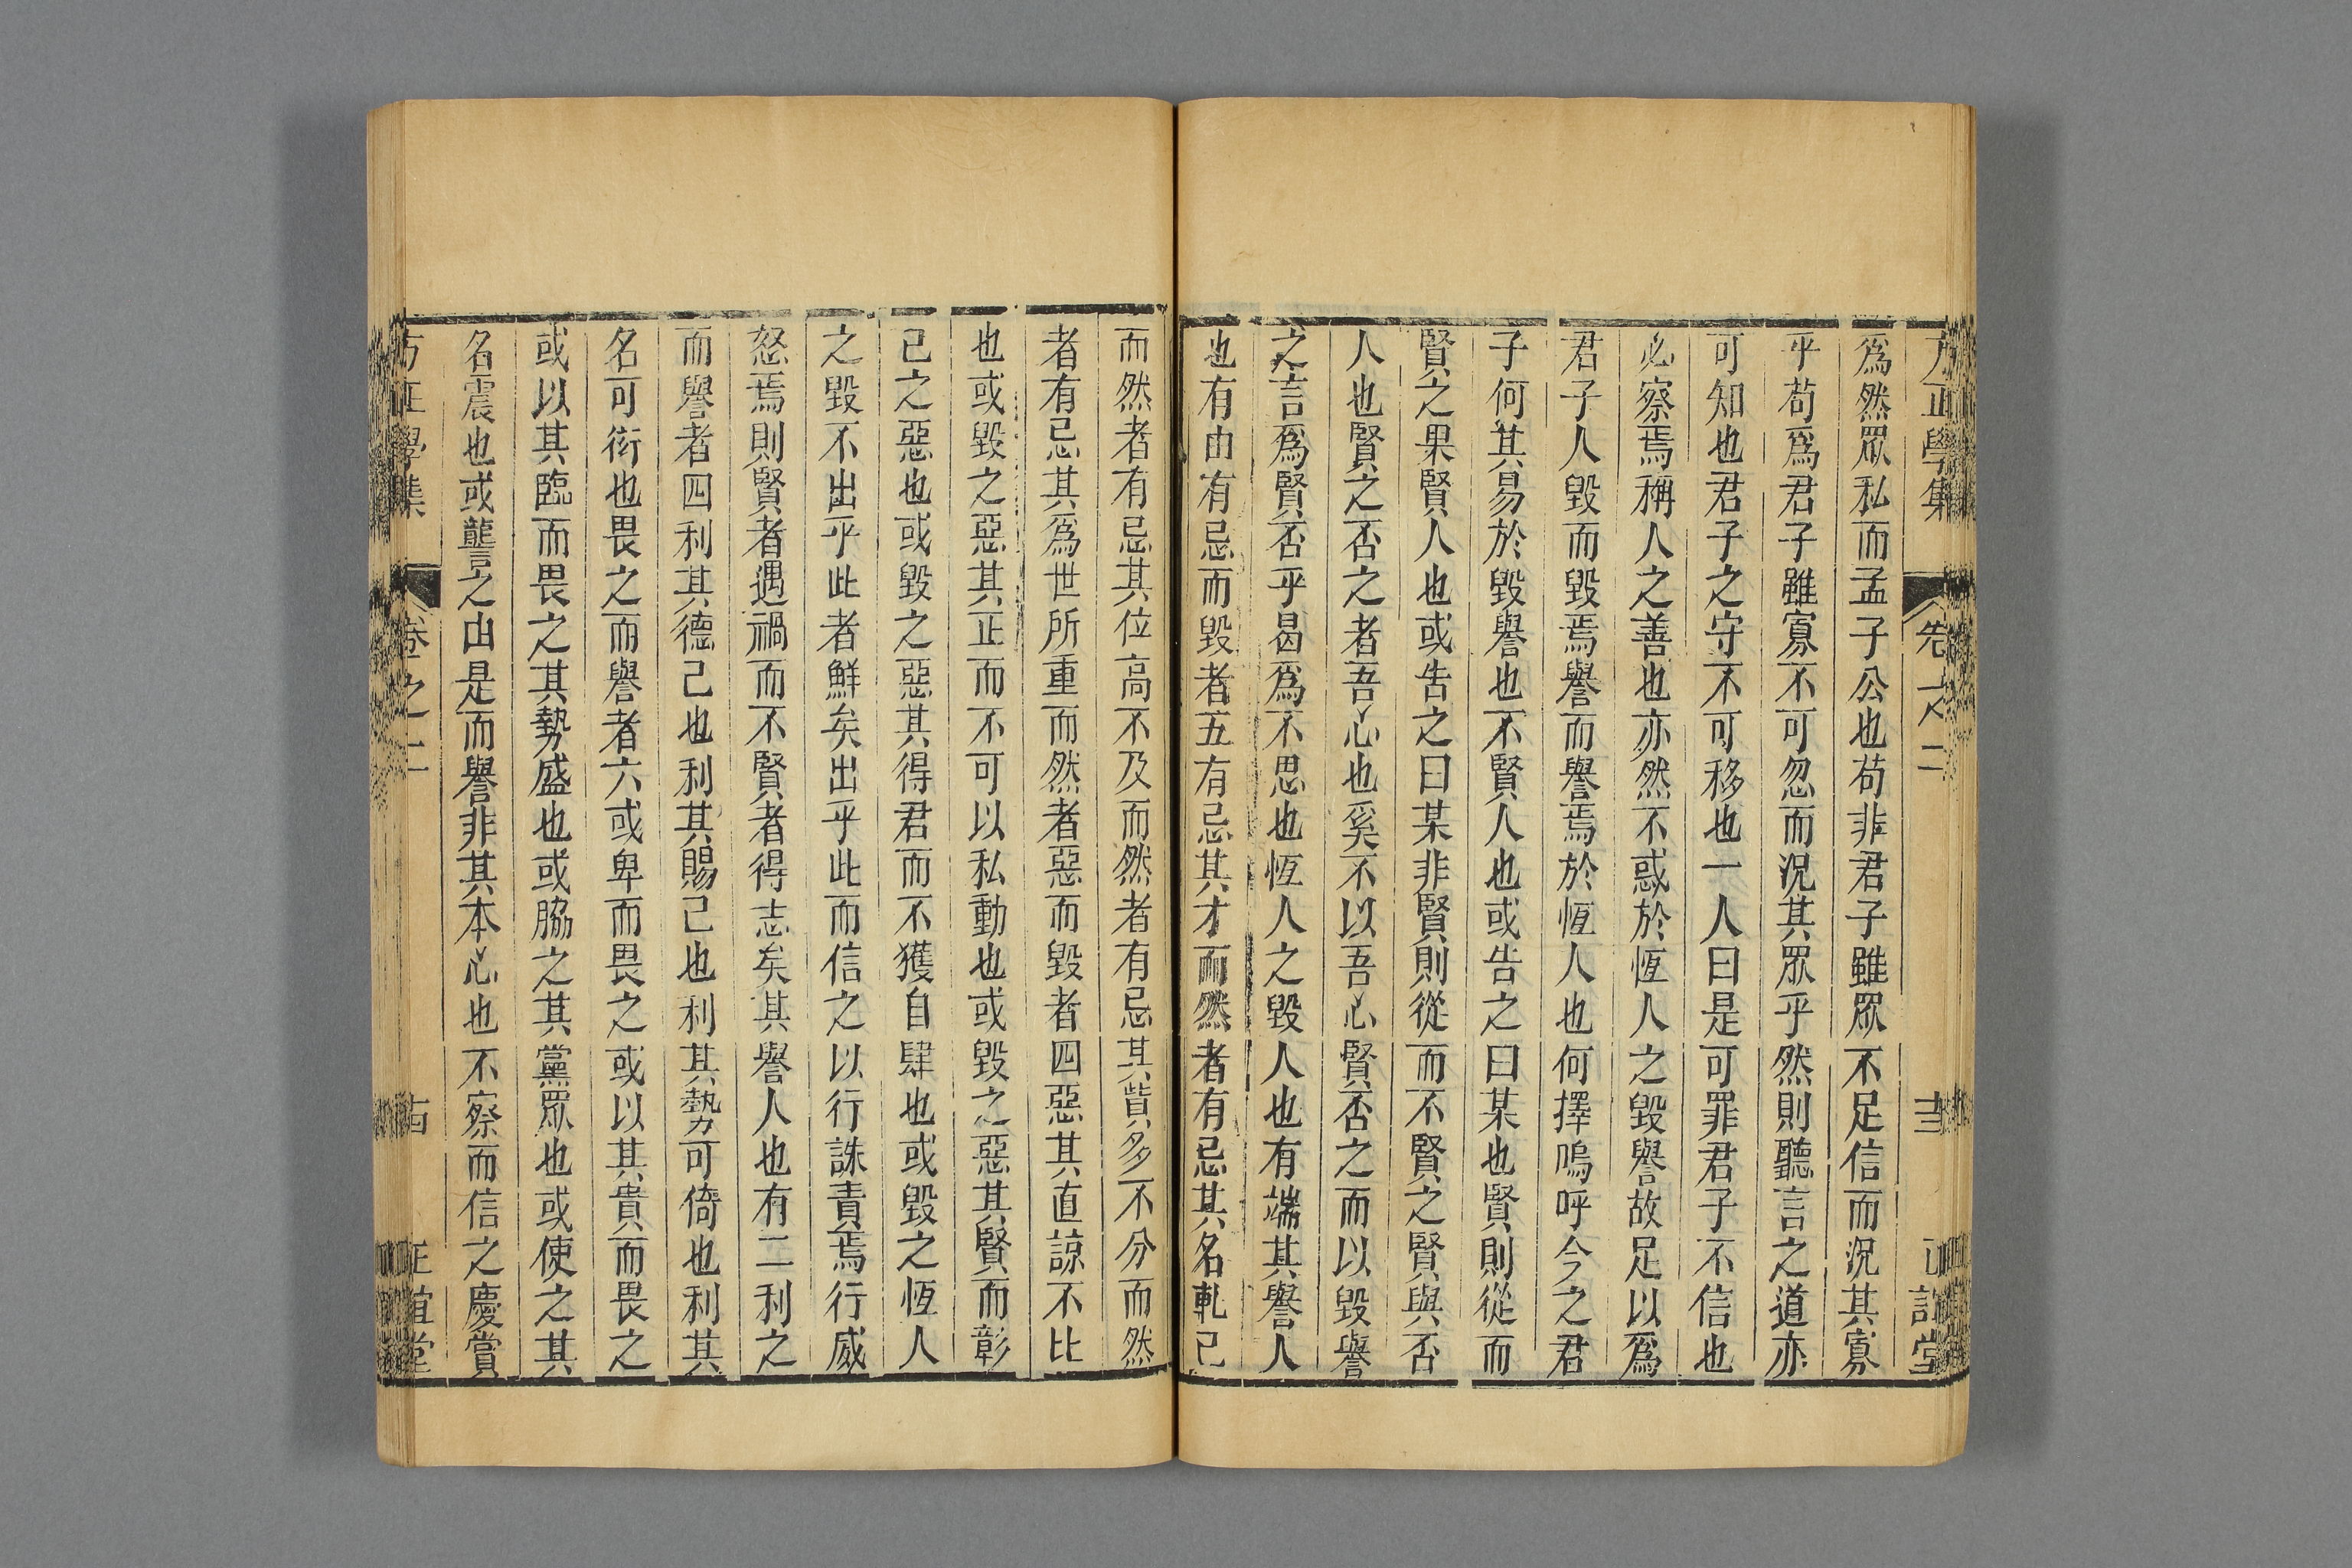 方正學集 卷之二 十三 正誼堂
爲然眾私而孟子公也苟非君子雖眾不足信而況其寡
乎苟爲君子雖寡不可忽而況其眾乎然則聽言之道亦
可知也君子之守不可移也一人曰是可罪君子不信也
必察焉稱人之善也亦然不惑於恆人之毀譽故足以爲
君子人毀而毀焉譽而譽焉於恆人也何擇嗚呼今之君
子何其易於毀譽也不賢人也或告之曰某也賢則從而
賢之果賢人也或告之曰某非賢則從而不賢之賢與否
人也賢之否之者吾心也奚不以吾心賢否之而以毀譽
之言爲賢否乎曷爲不思也恆人之毀人也有端其譽人
也有由有忌而毀者五有忌其才而然者有忌其名軋己
而然者有忌其位高不及而然者有忌其貲多不分而然
者有忌其爲世所重而然者惡而毀者四惡其直諒不比
也或毀之惡其正而不可以私動也或毀之惡其賢而彰
己之惡也或毀之惡其得君而不獲自肆也或毀之恆人
之毀不出乎此者鮮矣出乎此而信之以行誅責焉行威
怒焉則賢者遇禍而不賢者得志矣其譽人也有二利之
而譽者四利其德己也利其賜己也利其勢可倚也利其
名可衒也畏之而譽者六或卑而畏之或以其貴而畏之
或以其臨而畏之其勢盛也或脇之其黨眾也或使之其
名震也或讋之由是而譽非其本心也不察而信之慶賞
方正學集 卷之二 十四 正誼堂